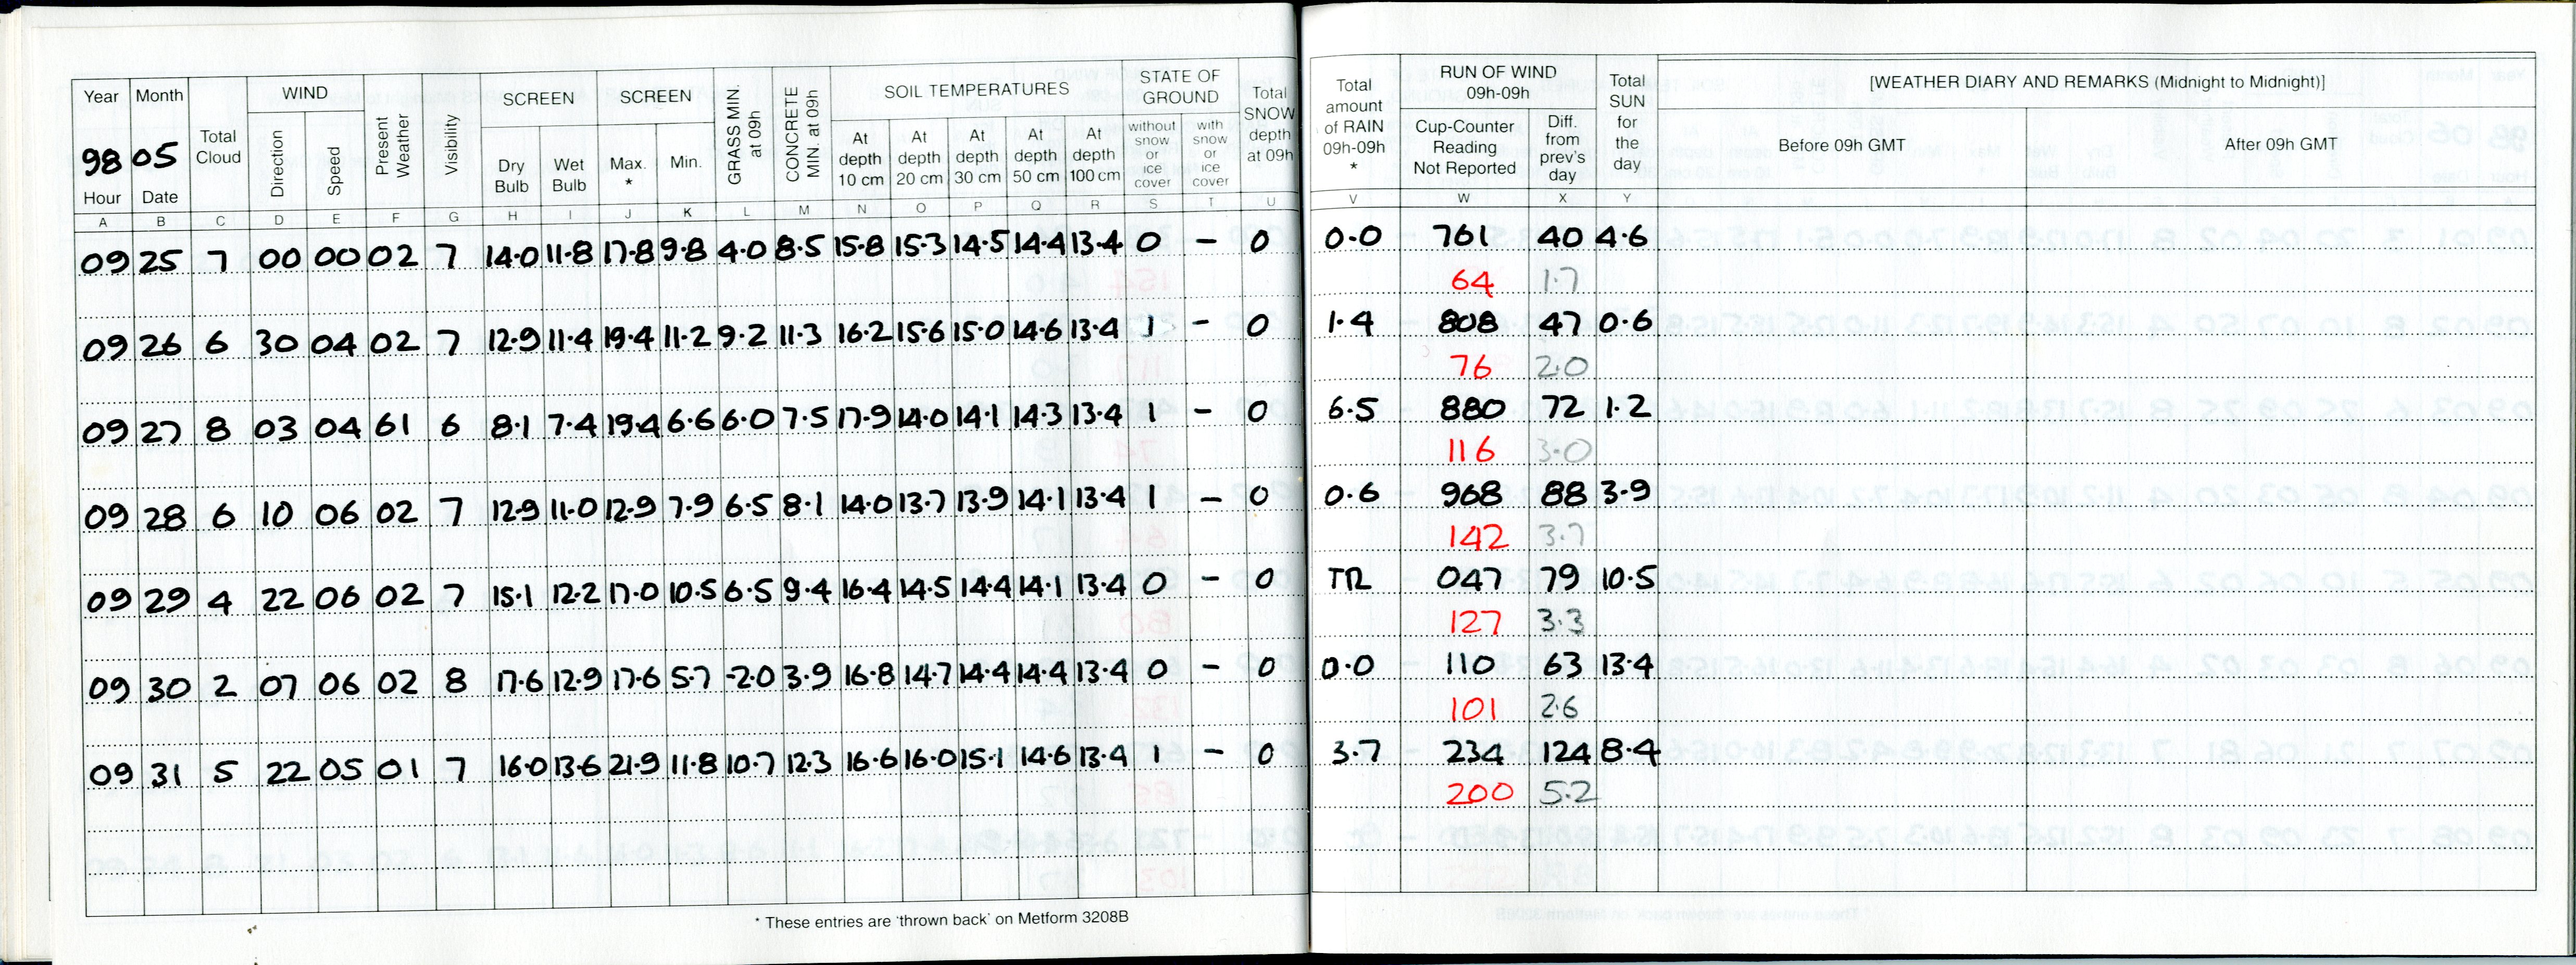 Year Month Total Cloud WIND Present Weather Visibility SCREEN SCREEN GRASS MIN. at 09h CONCRETE MIN. at 09h SOIL TEMPERATURES STATE OF GROUND Total SNOW depth at 09h Total amount of RAIN 09h-09h * RUN OF WIND 09h-09h Total SUN for the day [WEATHER DIARY AND REMARKS (Midnight to Midnight)]
98 05 Direction Speed Dry Bulb Wet Bulb Max. * Min. At depth 10 cm At depth 20 cm At depth 30 cm At depth 50 cm At depth 100 cm without snow or ice cover with snow or ice cover Cup-Counter Reading Not Reported Diff. from prev's day Before 09h GMT After 09h GMT
Hour Date
A B C D E F G H I J K L M N O P Q R S T U V W X Y
09 25 7 00 00 02 7 14.0 11.8 17.8 9.8 4.0 8.5 15.8 15.3 14.5 14.4 13.4 0 – 0 0.0 761 40 4.6
64 1.7
09 26 6 30 04 02 7 12.9 11.4 19.4 11.2 9.2 11.3 16.2 15.6 15.0 14.6 13.4 1 – 0 1.4 808 47 0.6
76 2.0
09 27 8 03 04 61 6 8.1 7.4 19.4 6.6 6.0 7.5 17.9 14.0 14.1 14.3 13.4 1 – 0 6.5 880 72 1.2
116 3.0
09 28 6 10 06 02 7 12.9 11.0 12.9 7.9 6.5 8.1 14.0 13.7 13.9 14.1 13.4 1 – 0 0.6 968 88 3.9
142 3.7
09 29 4 22 06 02 7 15.1 12.2 17.0 10.5 6.5 9.4 16.4 14.5 14.4 14.1 13.4 0 – 0 TR 047 79 10.5
127 3.3
09 30 2 07 06 02 8 17.6 12.9 17.6 5.7 -2.0 3.9 16.8 14.7 14.4 14.4 13.4 0 – 0 0.0 110 63 13.4
101 2.6
09 31 5 22 05 01 7 16.0 13.6 21.9 11.8 10.7 12.3 16.6 16.0 15.1 14.6 13.4 1 – 0 3.7 234 124 8.4
200 5.2
* These entries are 'thrown back' on Metform 3208B